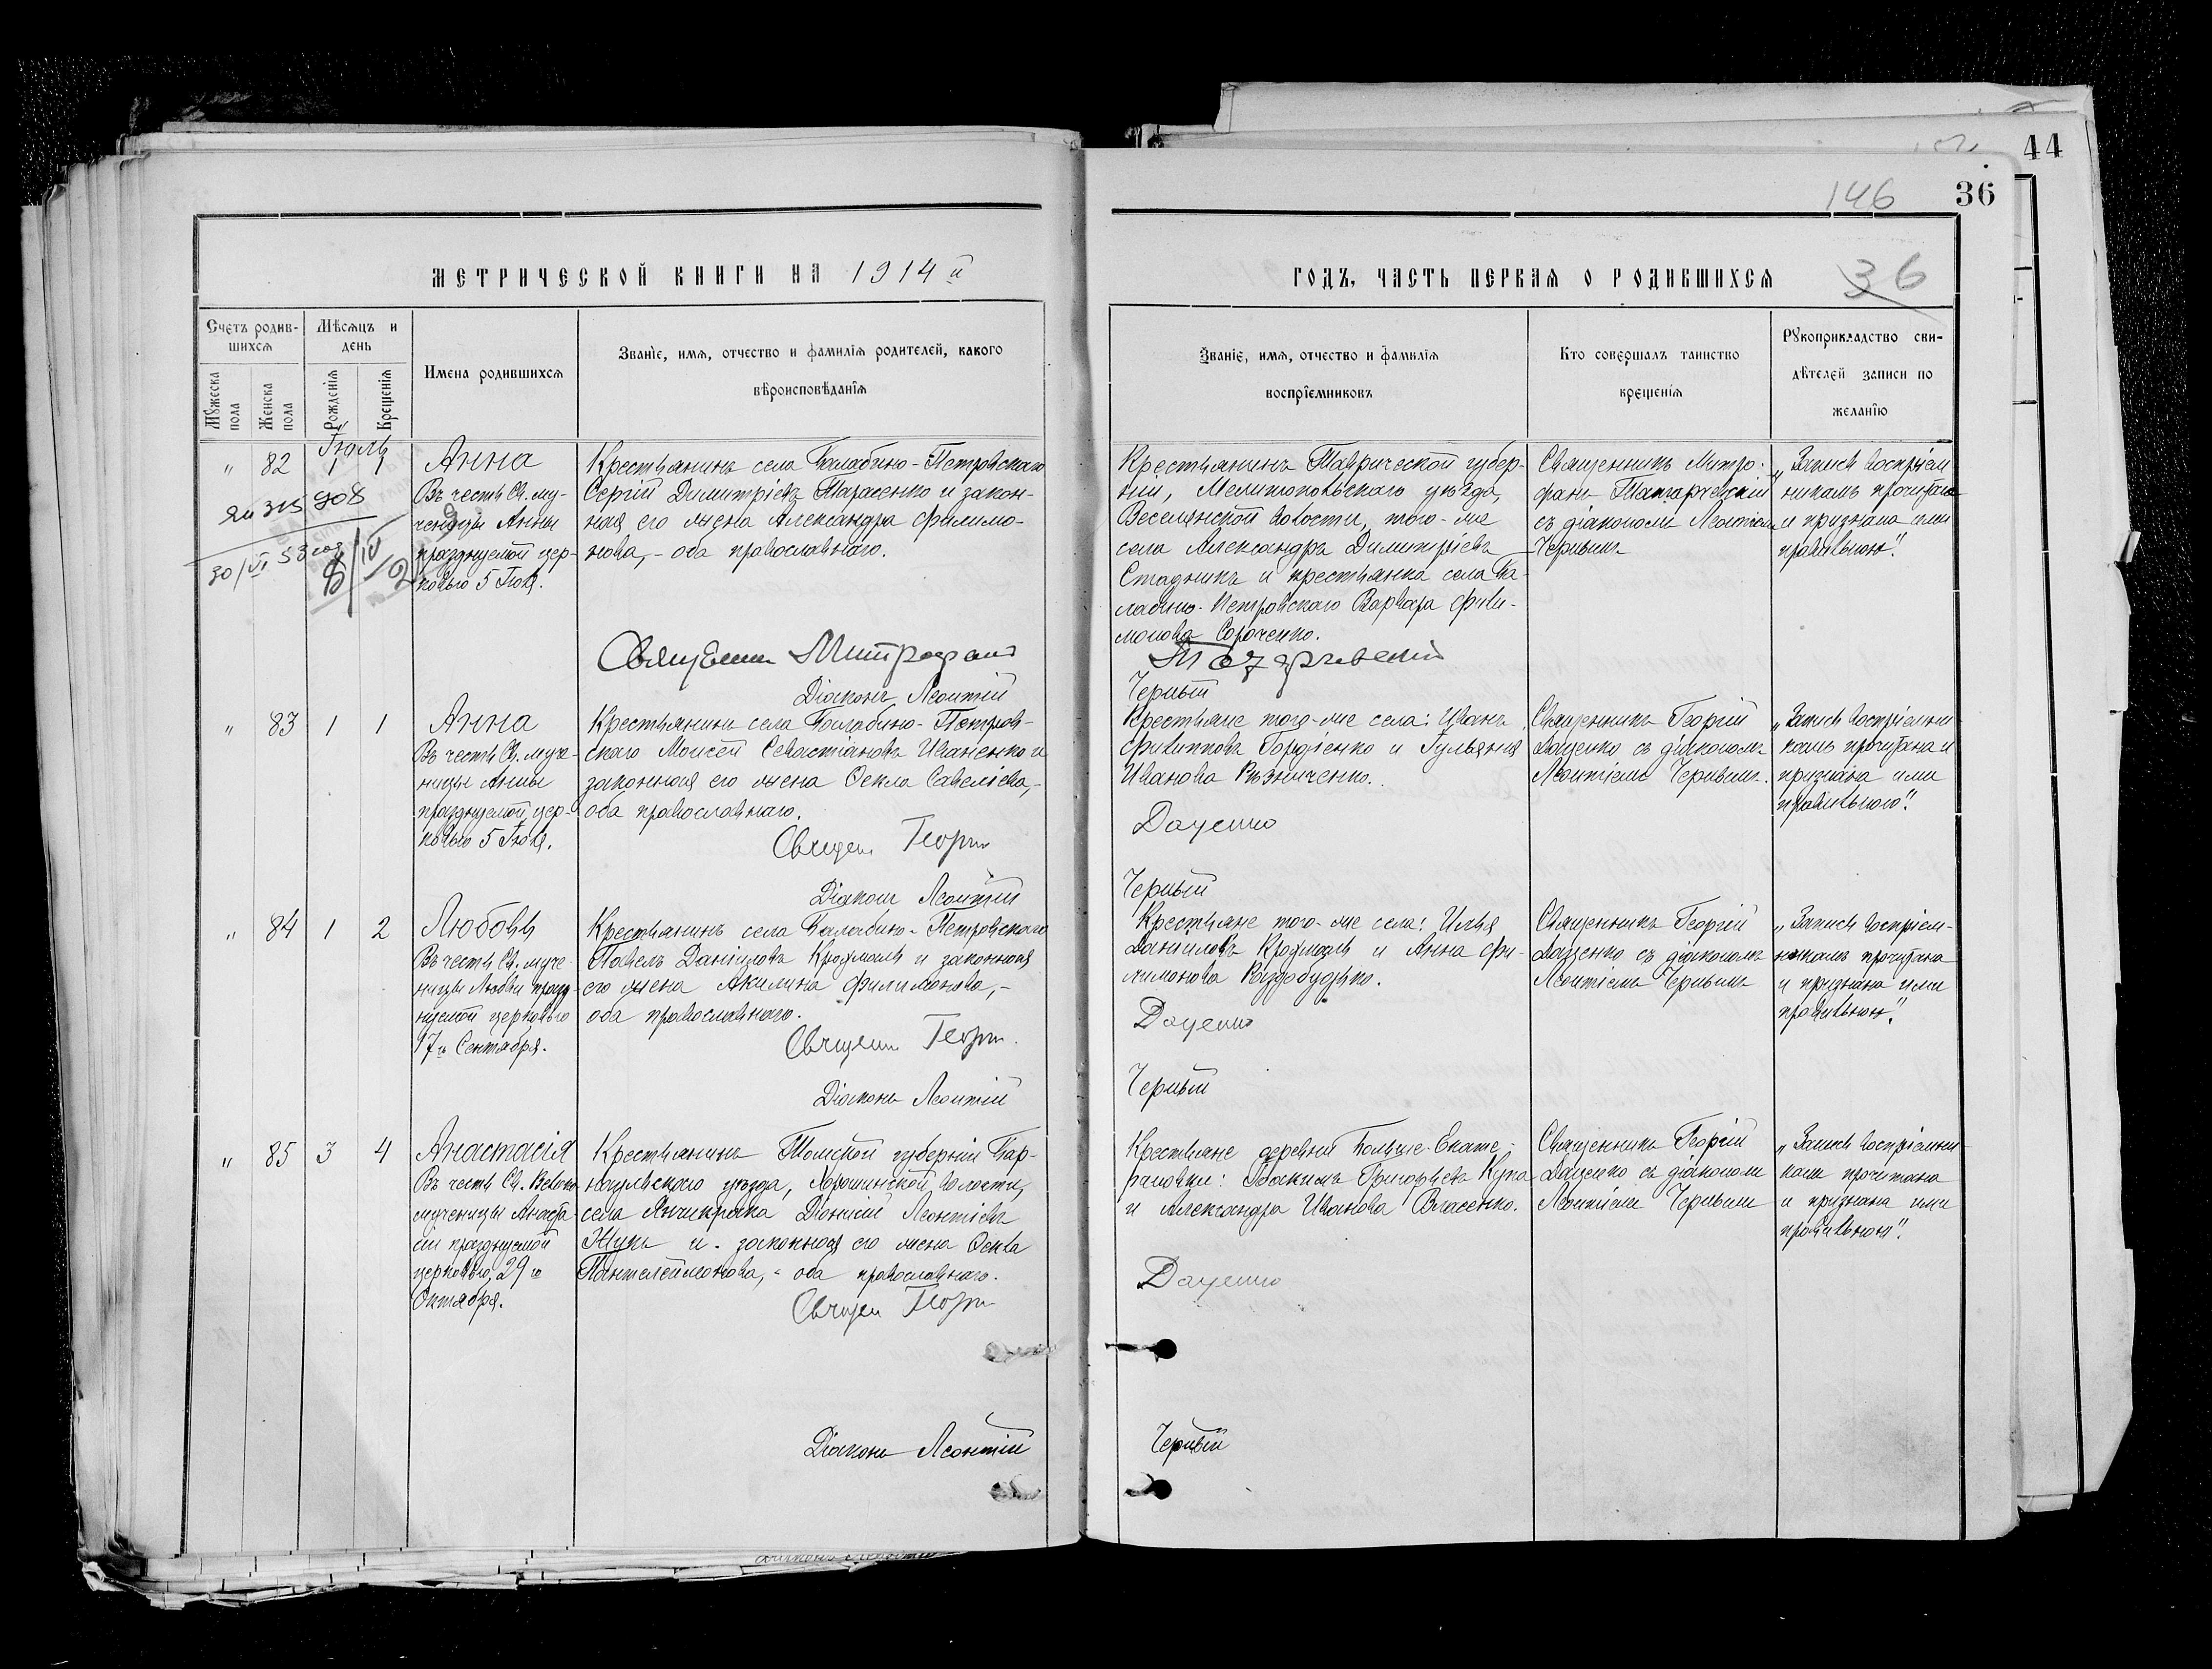 44
146
36
МЕТРИЧЕСКОЙ КНИГИ НА 1914й
ГОДЪ, ЧАСТЬ ПЕРВАЯ О РОДИВШИХСЯ
36
Счетъ родив-
шихся
Мѣсяцъ и
день
Имена родившихся
Званіе, имя, отчество и фамилія родителей, какого
вѣроисповѣданія
Мужеска
пола
Женска
пола
Рожденія
Крещенія
Званіе, имя, отчество и фамилія
воспріемниковъ
Кто совершалъ таинство
крещенія
Рукоприкладство сви-
дѣтелей записи по
желанію
Іюль
" 82 1 1
Анна
Въ честь Св. му-
ченицы Анны
празднуемой цер-
ковью 5 Іюля.
Крестьянинъ села Балабино-Петровскаго
Сергій Димитріевъ Тарасенко и закон-
ная его жена Александра Филимо-
нова,- оба православнаго.
Священн Митрофанъ
Діаконъ Леонтій
Крестьянинъ Таврической губер-
ніи, Мелитопольскаго уѣзда,
Веселянской волости, того-же
села Александръ Димитріевъ
Стадникъ и крестьянка села Ба-
лабино-Петровскаго Варвара Фили-
монова Сороченко.
Черный
Священникъ Митро-
фанъ
съ діакономъ Леонтіемъ
Чернымъ
„Запись воспріем
никамъ прочитана
и признана ими
правильною".
" 83 1 1
Анна
Въ честь Св. муче-
ницы Анны
празднуемой цер-
ковью 5 Іюля.
Крестьянинъ села Балабино-Петров-
скаго Моисей Севастіановъ Иваненко и
законная его жена Ѳекла Савеліева,-
оба православнаго.
Священ Георгій
Діаконъ Леонтій
Крестьяне того-же села: Иванъ
Филипповъ Гордіенко и Гульянія
Иванова Рѣзниченко.
Даценко
Черный
Священникъ Георгій
Даценко съ діакономъ
Леонтіемъ Чернымъ.
„Запись воспріемни
камъ прочитана и
признана ими
правильною".
" 84 1 2
Любовь
Въ честь Св. муче-
ницы Любви празд-
нуемой церковью
17го Сентября.
Крестьянинъ села Балабино-Петровскаго
Павелъ Даниіловъ Крохмаль и законная
его жена Акилина Филимонова,-
оба православнаго.
Священн Георгій
Діаконъ Леонтій
Крестьяне того-же села: Илья
Даниловъ Крохмаль и Анна Фи-
лимонова
Даценко
Черный
Священникъ Георгій
Даценко съ діакономъ
Леонтіемъ Чернымъ
„Запись воспріем-
никамъ прочитана
и признана ими
правильною".
" 85 3 4
Анастасія
Въ честь Св. Велико
мученицы Анаста
сіи празднуемой
церковью 29го
Октября.
Крестьянинъ Томской губерніи Бар-
наульскаго уѣзда, волости,
села Діонисій Леонтіевъ
Жукъ и законная его жена Ѳекла
Пантелеймонова,- оба православнаго.
Священ Георгій
Діаконъ Леонтій
Крестьяне деревни Больше-Екате-
риновки: Іоакимъ Григорьевъ Купа
и Александра Иванова Власенко.
Даценко
Черный
Священникъ Георгій
Даценко съ діакономъ
Леонтіемъ Чернымъ
„Запись воспріемни
камъ прочитана
и признана ими
правильною".